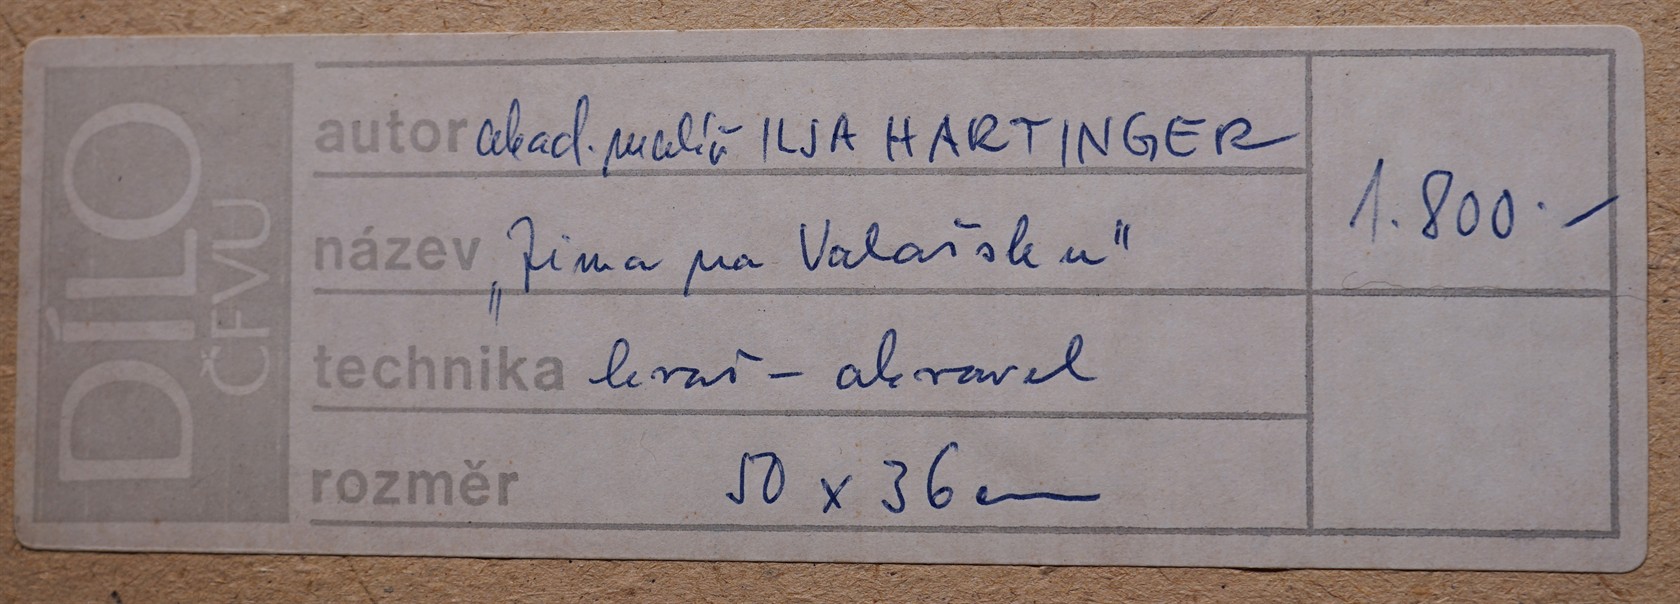 DÍLO
ČFVU
autor akad. malíř ILJA HARTINGER
název „Zima na Valašsku"
technika kvaš - akvarel
rozměr 50 x 36 cm
1.800.-